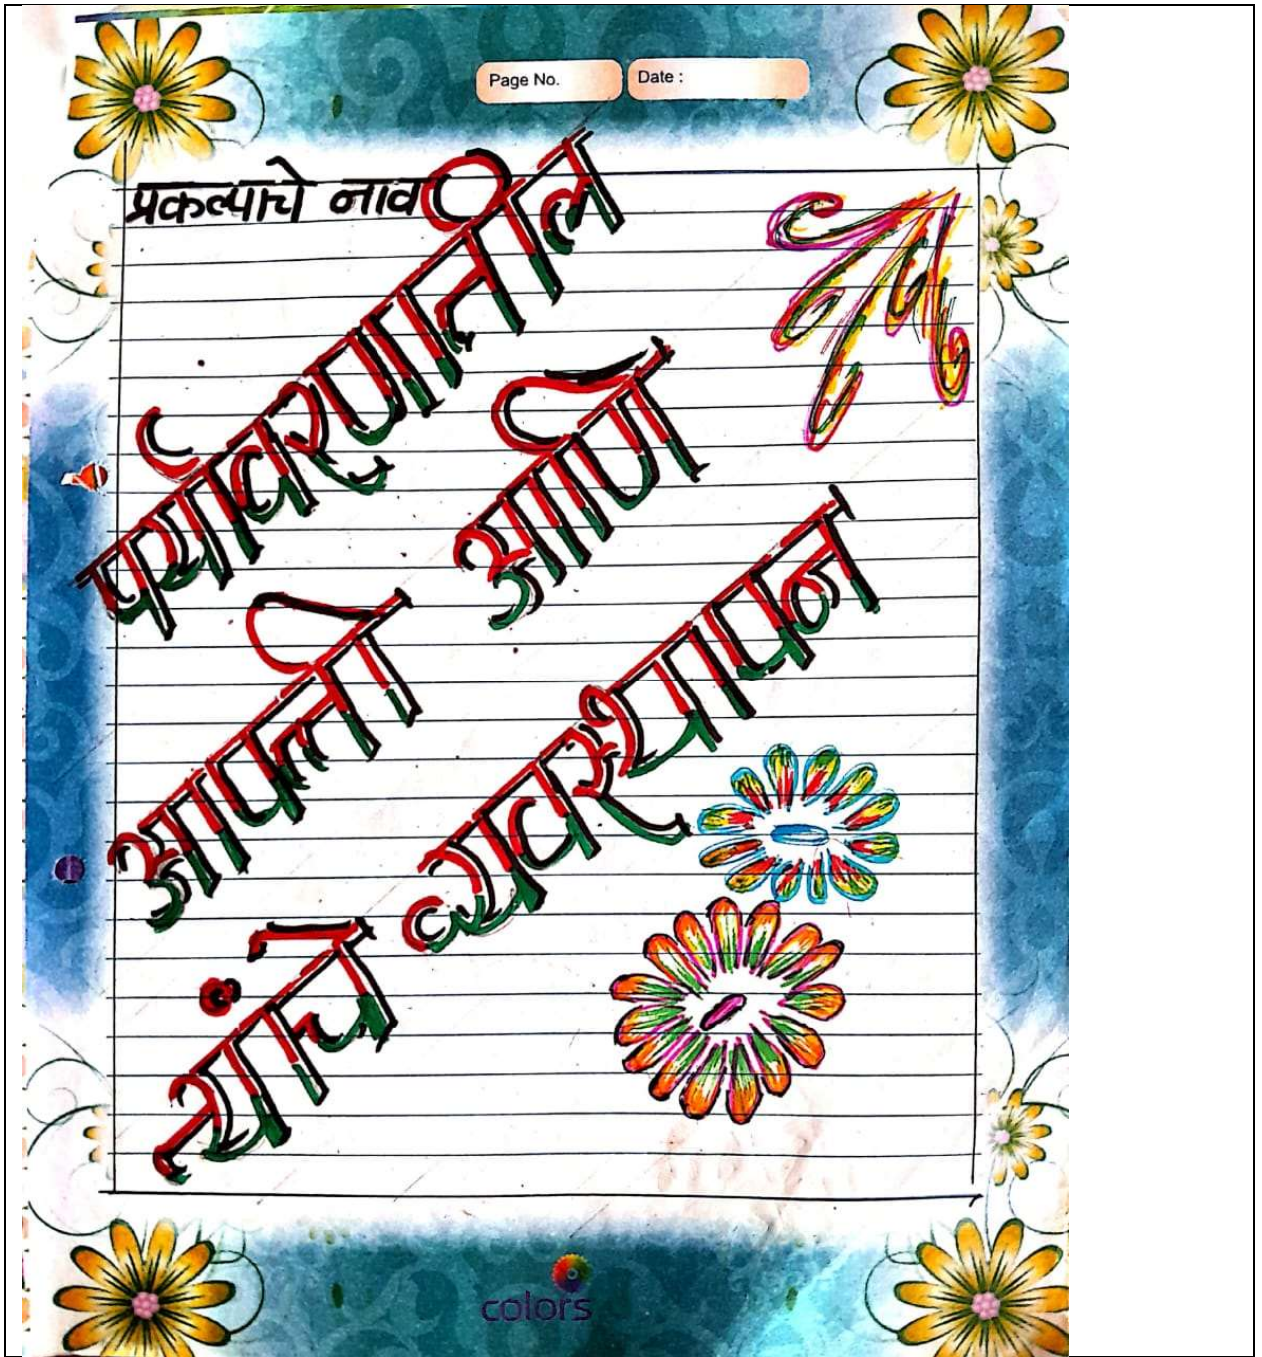 Page No. Date :
प्रकल्पाचे नाव
पर्यावरणातील
आपत्ती आणि
यांचे व्यवस्थापन
colors